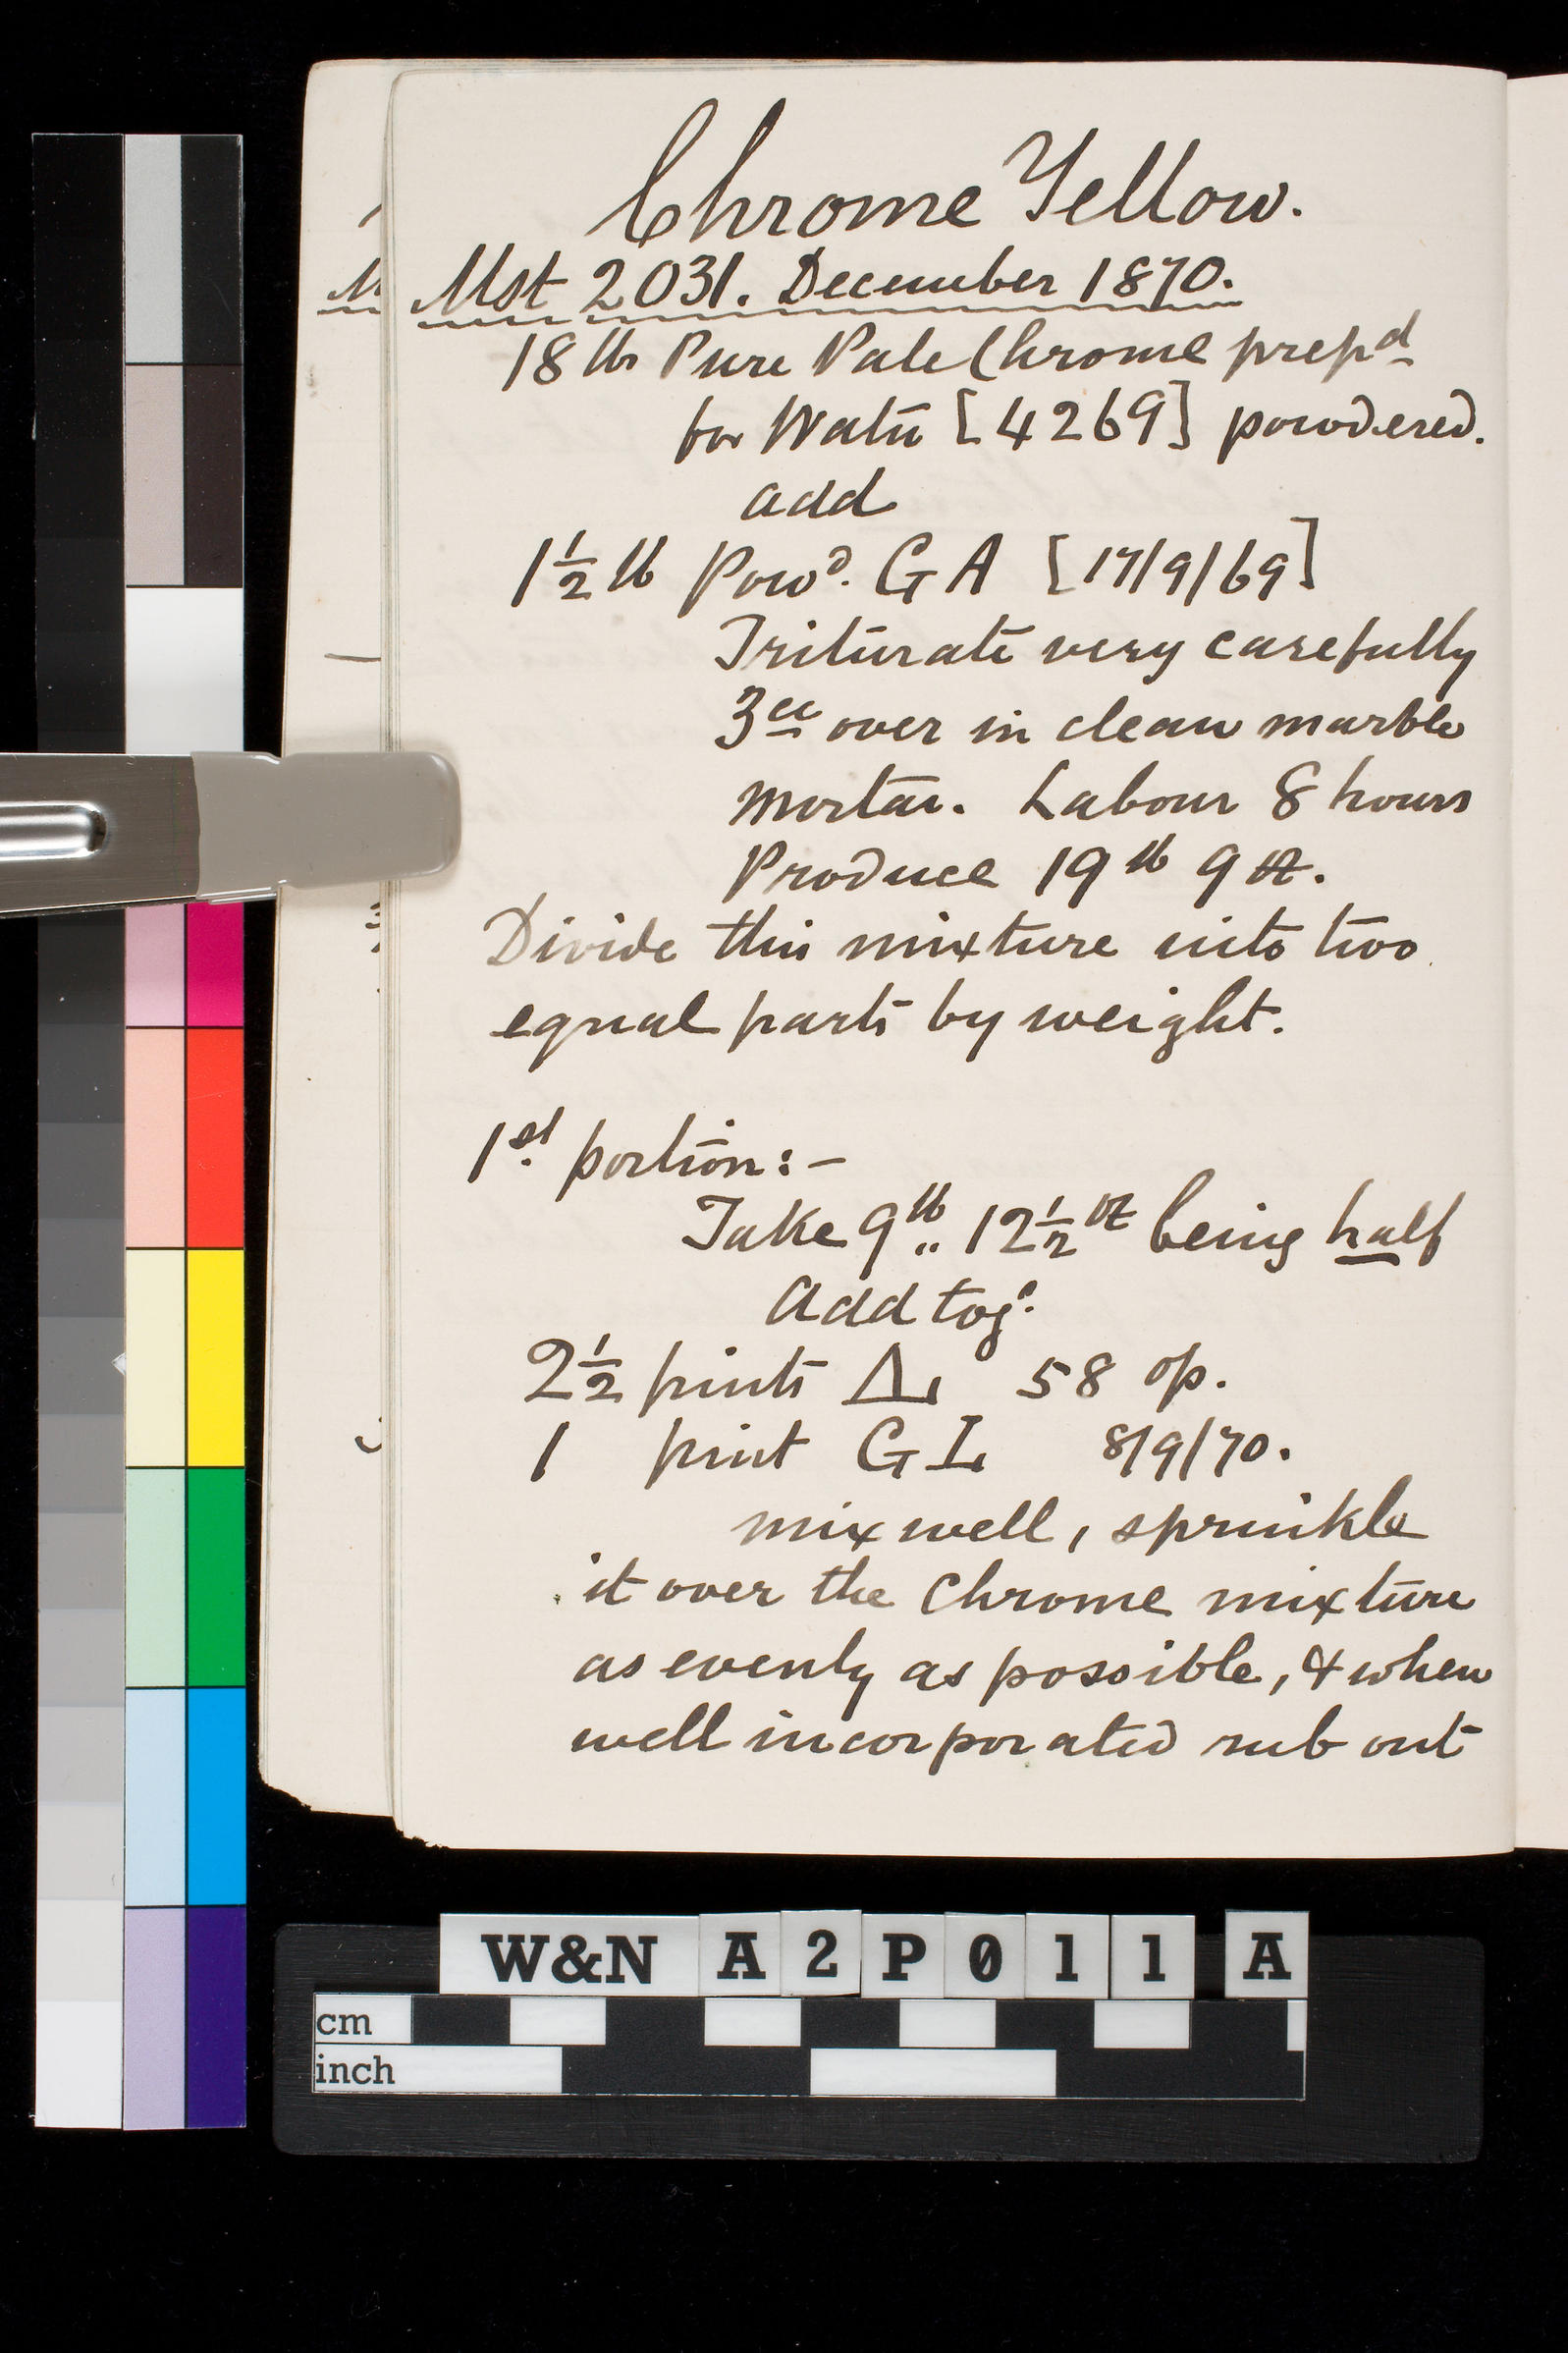 Chrome Yellow.
Mst 2031. December 1870.
18 lb Pure Pale Chrome prepd
for Water [4269] powdered.
add
1½ lb Powd. G A [17/9/69]
Triturate very carefully
3ce over in clean marble
mortar. Labour 8 hours
Produce 19 lb 9 oz.
Divide this mixture into two
equal parts by weight.
1st. portion:-
Take 9 lb„ 12½ oz being half
Add togr.
2½ pints Δ 58 op.
1 pint G L 8/9/70.
mix well, sprinkle
it over the Chrome mixture
as evenly as possible, & when
well incorporated rub out
W&N A2P011 A
cm
inch